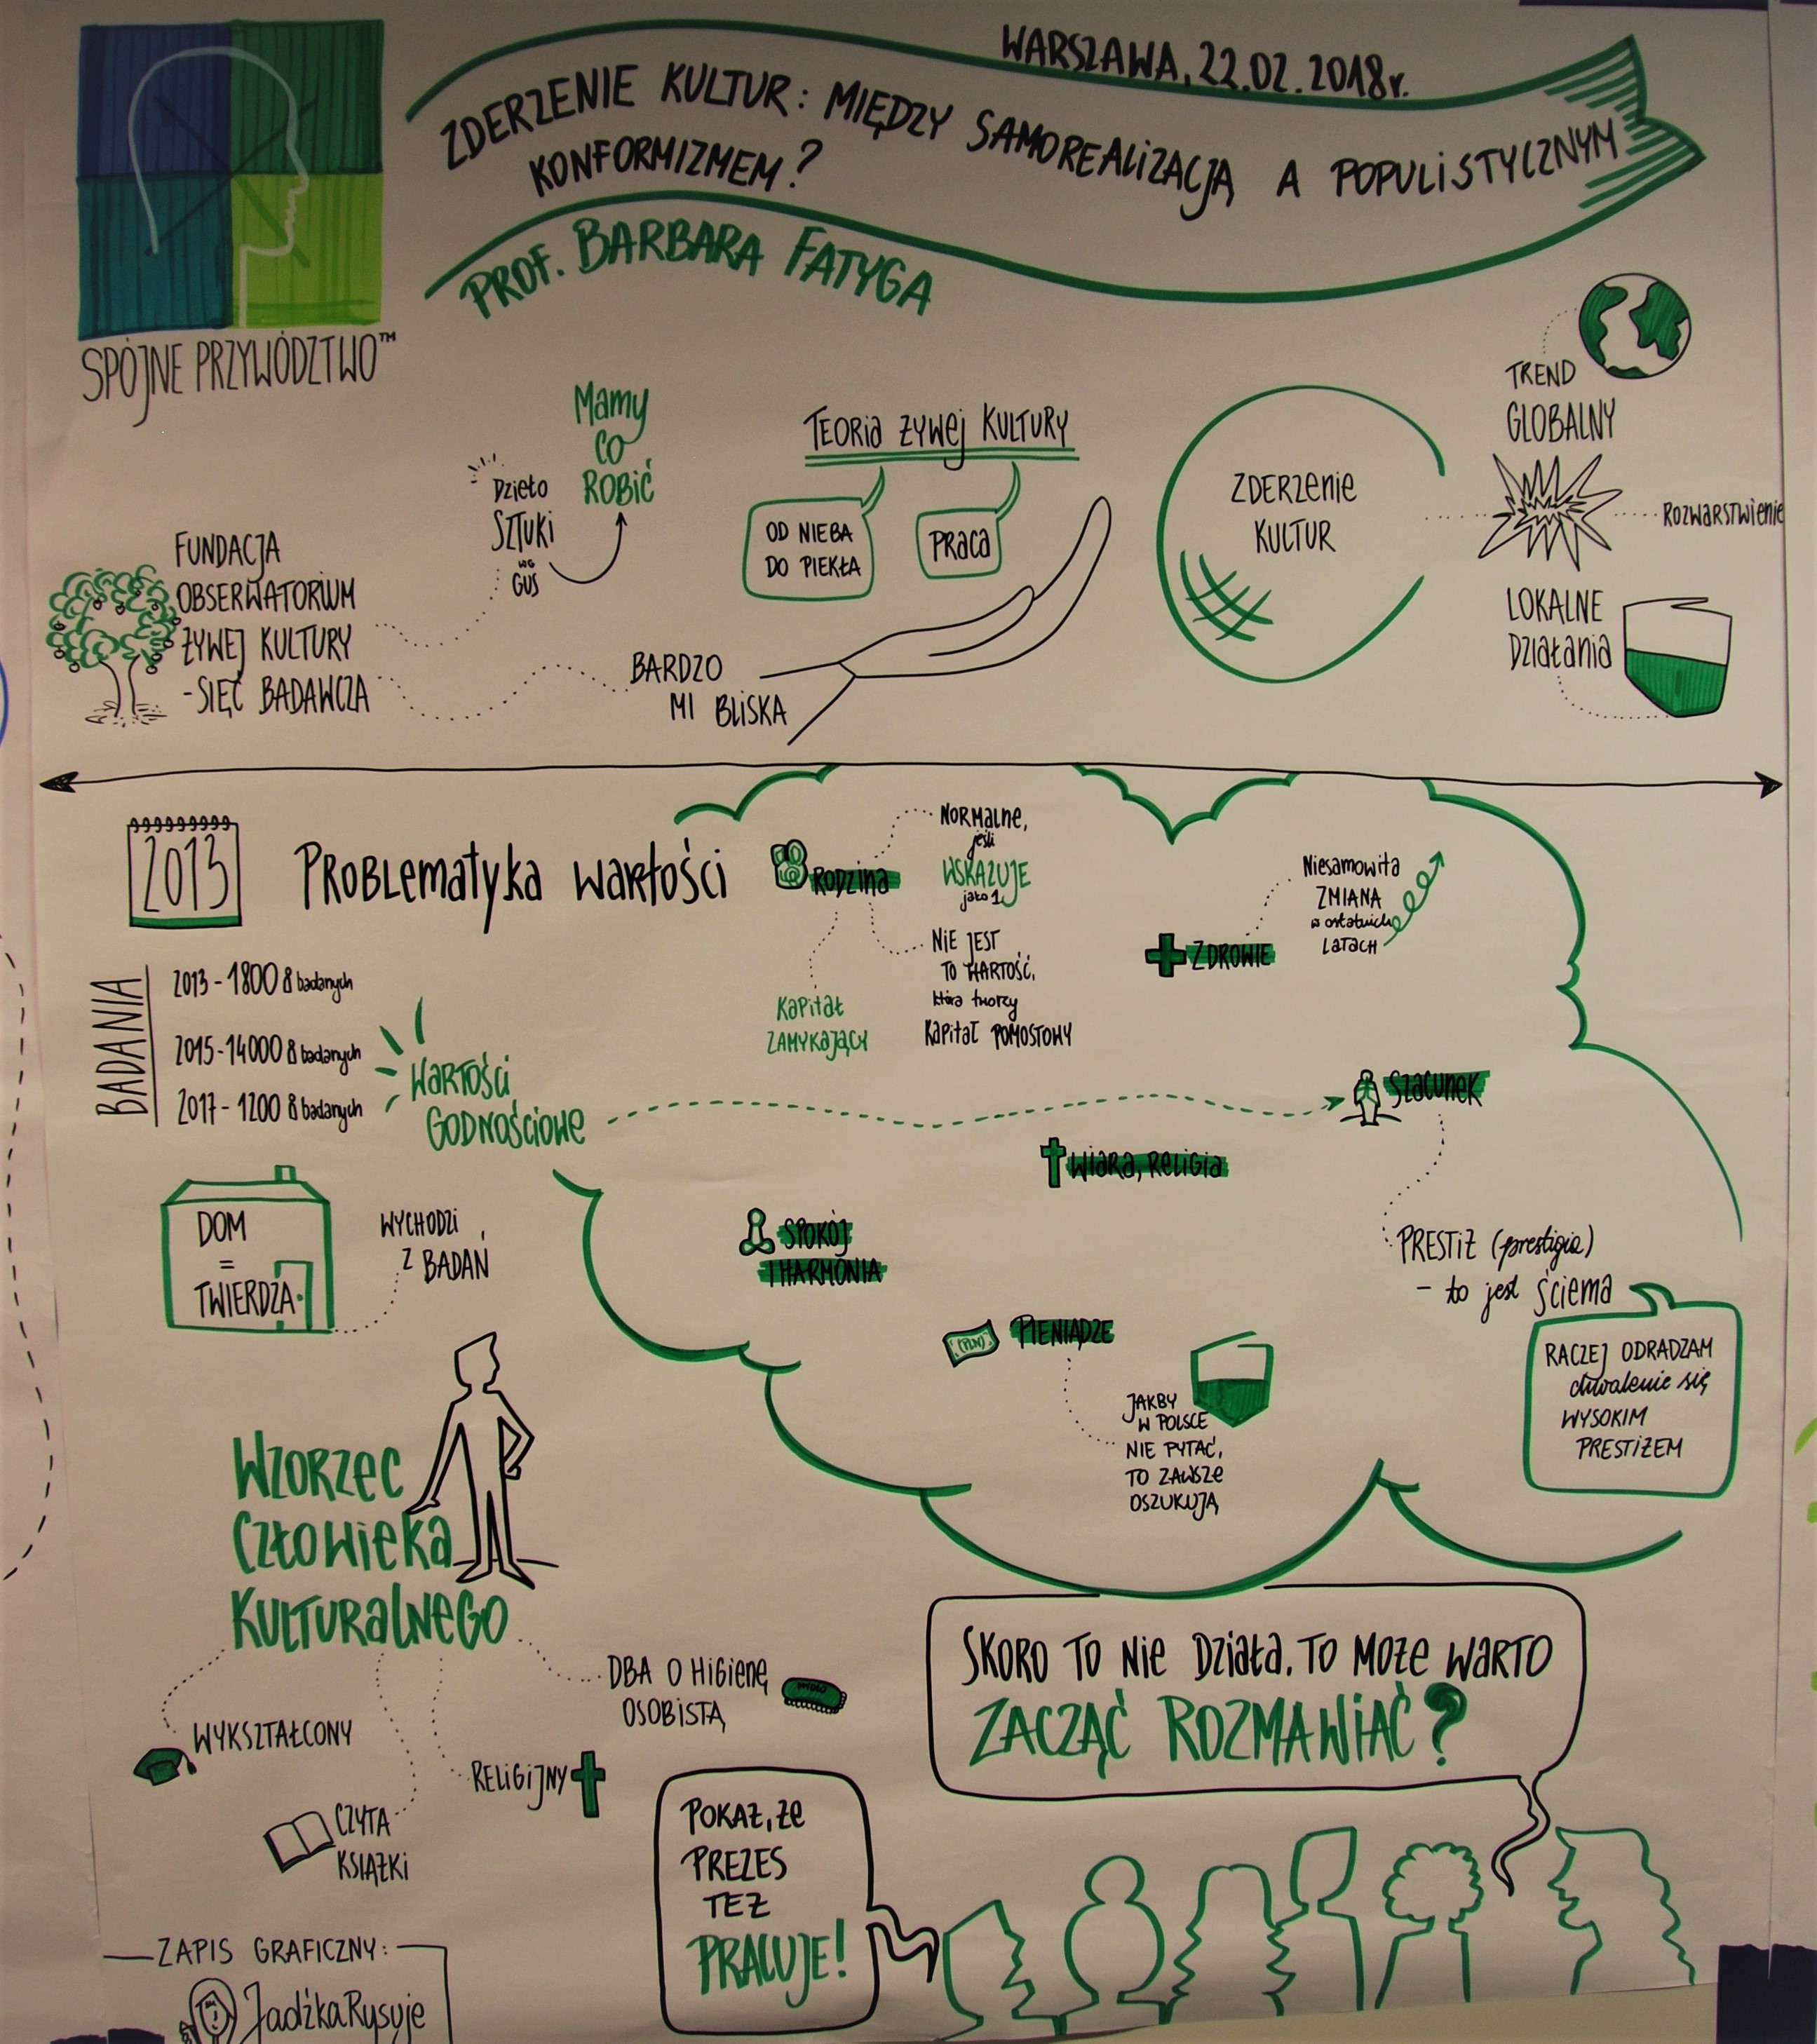 WARSZAWA, 22.02.2018r.
ZDERZENIE KULTUR: MIĘDZY SAMOREALIZACJĄ A POPULISTYCZNYM
KONFORMIZMEM?
PROF. BARBARA FATYGA
SPÓJNE PRZYWÓDZTWO™
FUNDACJA
OBSERWATORIUM
ŻYWEJ KULTURY
- SIEĆ BADAWCZA
Dzieło
SZTUKI
wg
GUS
Mamy
CO
ROBIĆ
BARDZO
MI BLISKA
TEORIA ŻYWEJ KULTURY
OD NIEBA
DO PIEKŁA
PRACA
ZDERZENIE
KULTUR
TREND
GLOBALNY
ROZWARSTWIENIE
LOKALNE
DZIAŁANIA
2013
PROBLEMATYKA WARTOŚCI
BADANIA
2013 - 1800 badanych
2015 - 14000 badanych
2017 - 1200 badanych
WARTOŚCI
GODNOŚCIOWE
RODZINA
NORMALNE,
jeśli
WSKAZUJE
jako 1.
NIE JEST
TO WARTOŚĆ,
która tworzy
KAPITAŁ POMOSTOWY
KAPITAŁ
ZAMYKAJĄCY
ZDROWIE
NIESAMOWITA
ZMIANA
w ostatnich
LATACH
SZACUNEK
WIARA, RELIGIA
SPOKÓJ
I HARMONIA
PIENIĄDZE
(PLN)
JAKBY
W POLSCE
NIE PYTAĆ,
TO ZAWSZE
OSZUKUJĄ
PRESTIŻ (prestigia)
- to jest ŚCIEMA
RACZEJ ODRADZAM
chwalenie się
WYSOKIM
PRESTIŻEM
DOM
=
TWIERDZA
WYCHODZI
Z BADAŃ
WZORZEC
CZŁOWIEKA
KULTURALNEGO
WYKSZTAŁCONY
CZYTA
KSIĄŻKI
RELIGIJNY
DBA O HIGIENĘ
OSOBISTĄ
MYDŁO
SKORO TO NIE DZIAŁA, TO MOŻE WARTO
ZACZĄĆ ROZMAWIAĆ?
POKAŻ, ŻE
PREZES
TEŻ
PRACUJE!
ZAPIS GRAFICZNY:
JadźkaRysuje